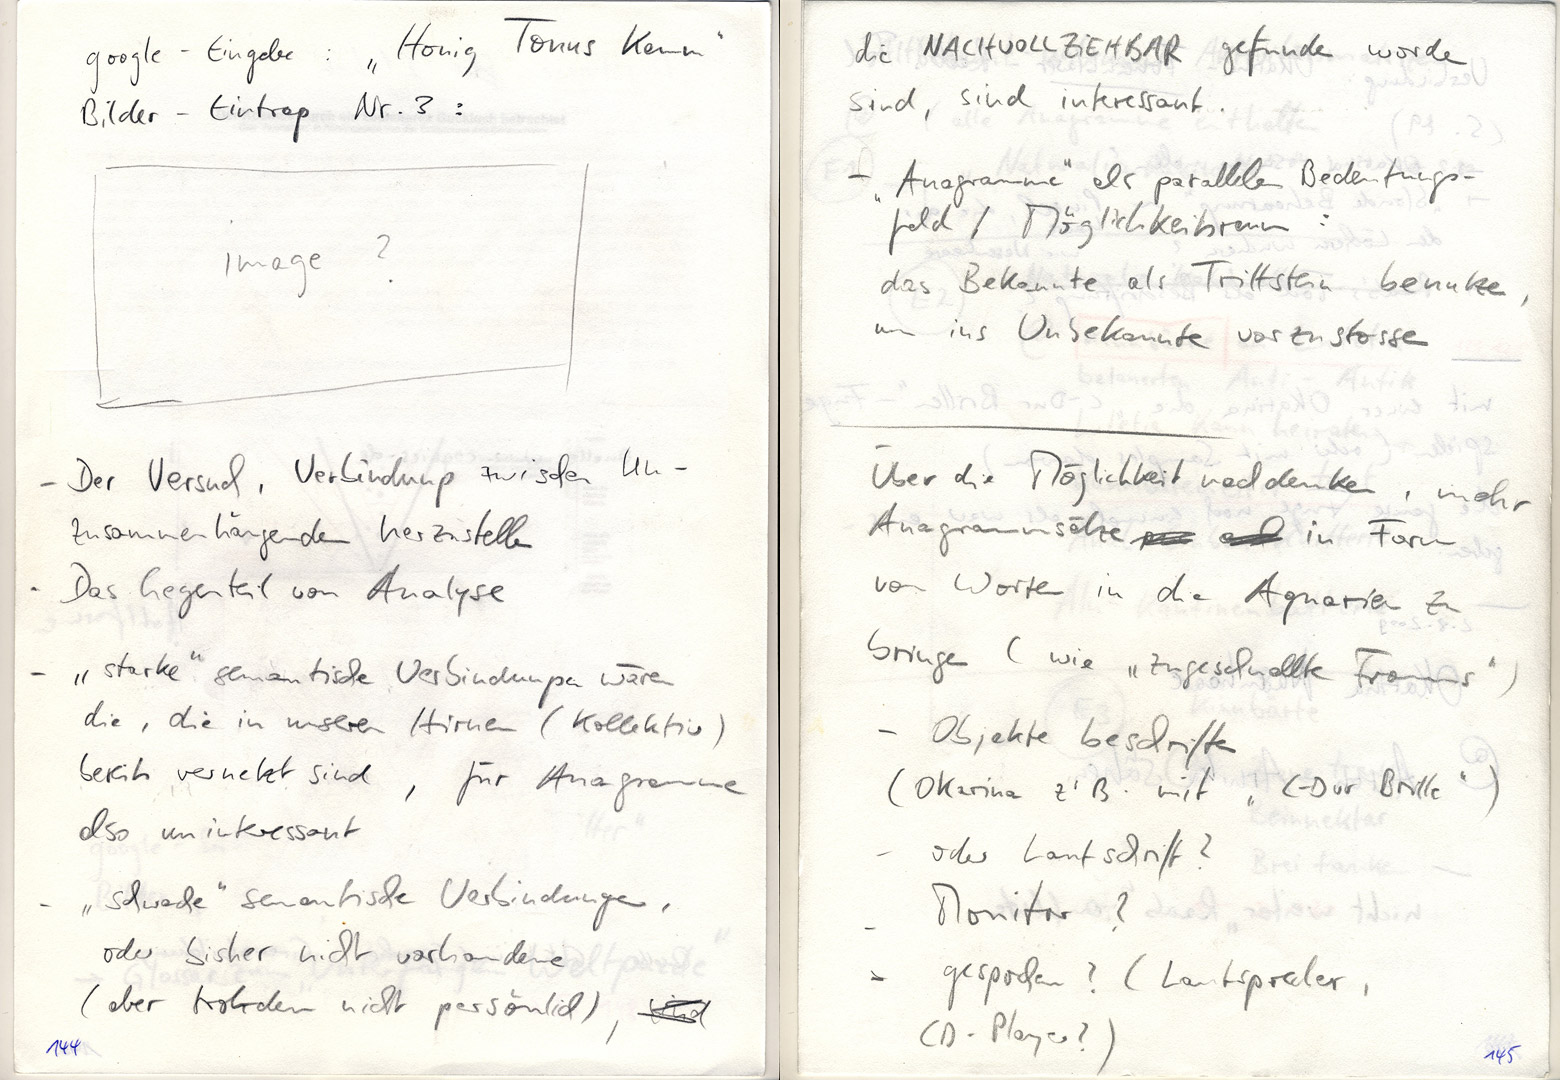 google - Eingabe : „Honig Tonus Kamm“
Bilder - Eintrag Nr. 3 :
image ?
- Der Versuch, Verbindung zwischen Un-
zusammenhängenden herzustellen
- Das Gegenteil von Analyse
- „starke“ semantische Verbindungen wären
die, die in unseren Hirnen (Kollektiv)
bereits vernetzt sind, für Anagramme
also uninteressant
- „schwache“ semantische Verbindungen,
oder bisher nicht vorhandene
(aber trotzdem nicht persönlich), sind
144
die NACHVOLLZIEHBAR gefunden worden
sind, sind interessant.
- „Anagramme“ als parallelen Bedeutungs-
feld / Möglichkeitsraum :
das Bekannte als Trittstein benutzen,
um ins Unbekannte vorzustossen
Über die Möglichkeit nachdenken, mehr
Anagrammsätze in Form
von Worten in die Aquarien zu
bringen (wie „zugeschnallte Fromms“)
- Objekte beschriften
(Okarina z.B. mit „C-Dur Brille“)
- oder Lautschrift?
- Monitor?
- gesprochen? (Lautsprecher,
CD-Player?)
145